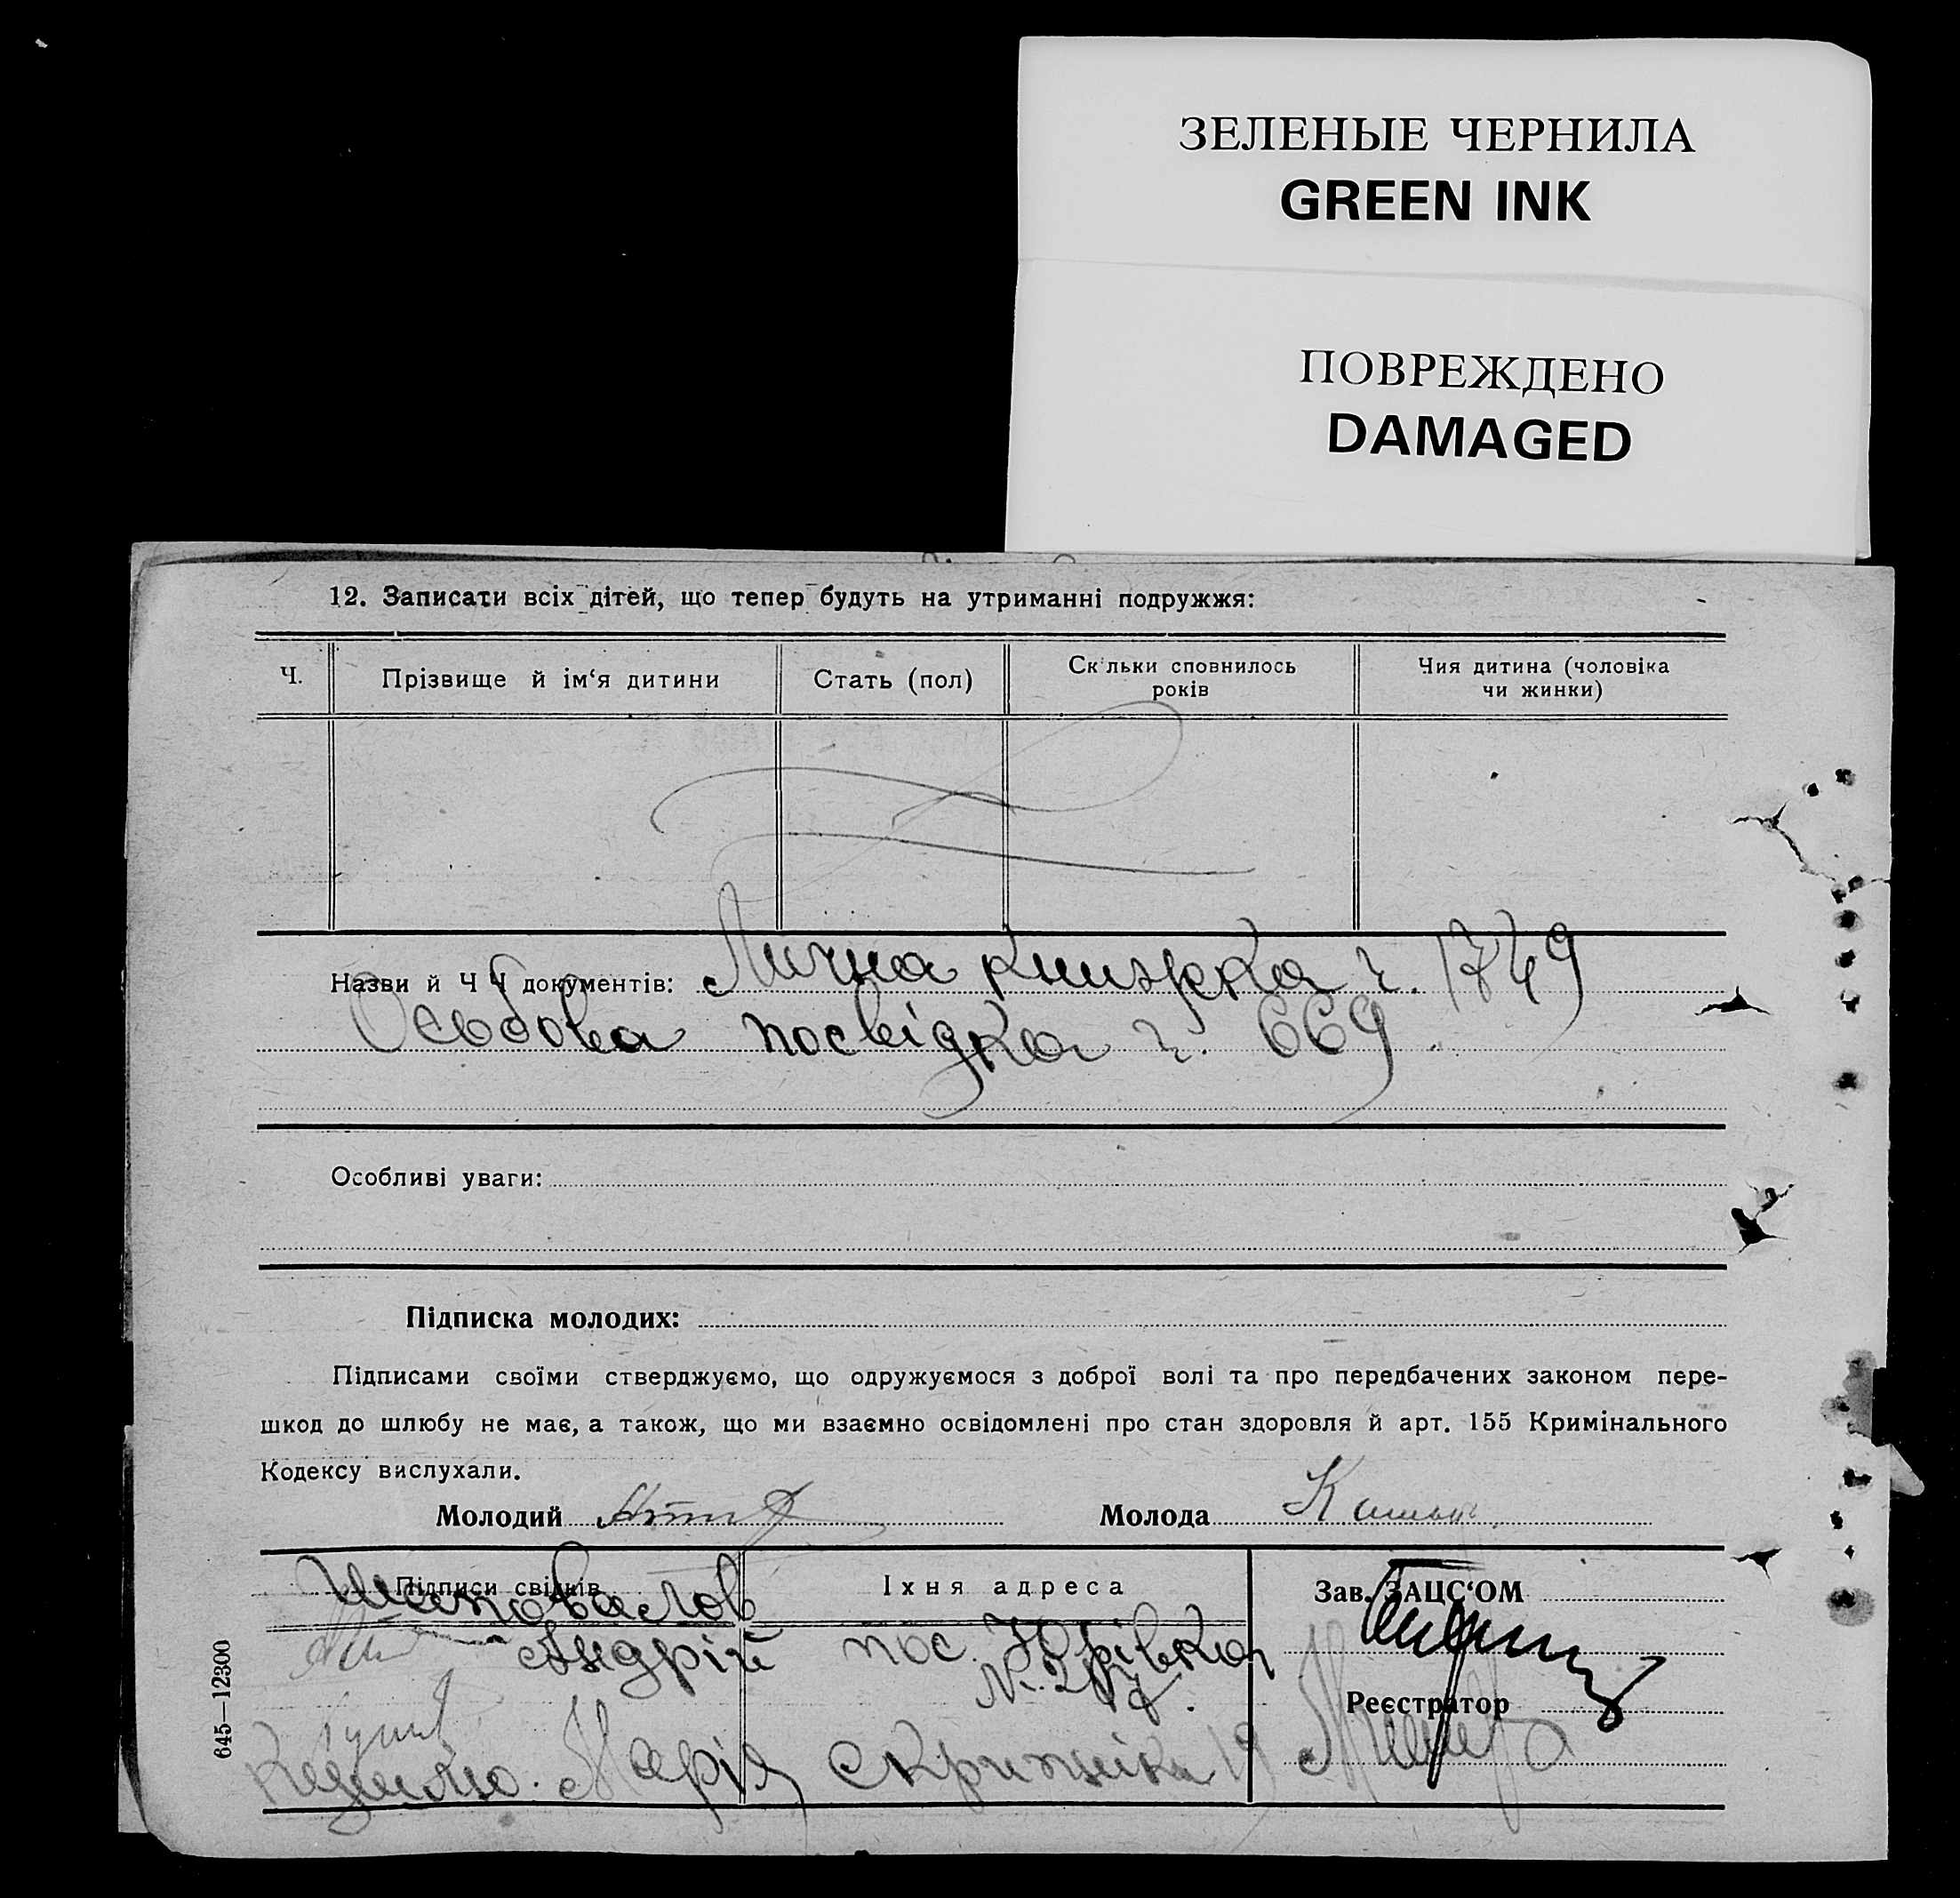 ЗЕЛЕНЫЕ ЧЕРНИЛА
GREEN INK
ПОВРЕЖДЕНО
DAMAGED
12. Записати всіх дітей, що тепер будуть на утриманні подружжя:
Ч.
Прізвище й ім‘я дитини
Стать (пол)
Скільки сповнилось
років
Чия дитина (чоловіка
чи жинки)
Назви й Ч Ч документів: Лична книжка ч. 1749
Особова посвідка ч. 669
Особливі уваги:
Підписка молодих:
Підписами своїми стверджуємо, що одружуємося з доброї волі та про передбачених законом пере-
шкод до шлюбу не має, а також, що ми взаємно освідомлені про стан здоровля й арт. 155 Кримінального
Кодексу вислухали.
Молодий
Молода
Підписи свідків
Їхня адреса
Зав. ЗАЦС‘ОМ
Шаповалов
Андрій пос. Юрівка
Реєстратор
Марія Скрипніка 19
645—12300